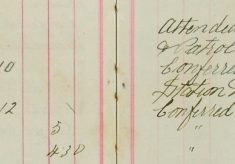 Attended
& Patrol
10 Conferred
Station
12 Conferred
5 "
4 30 "